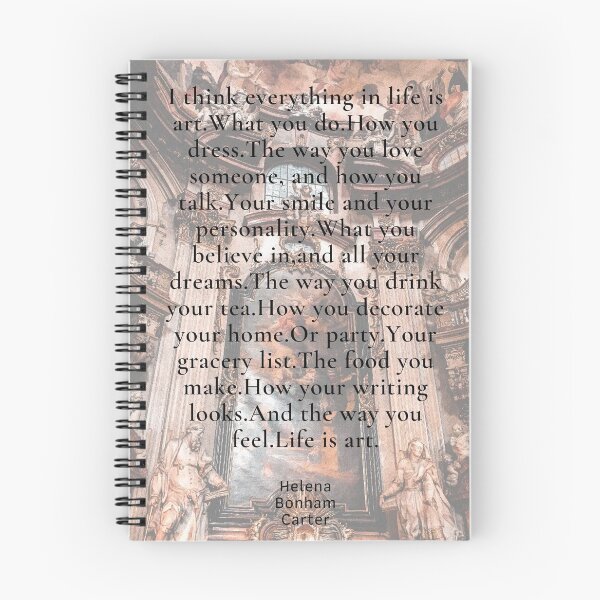 I think everything in life is
art.What you do.How you
dress.The way you love
someone, and how you
talk.Your smile and your
personality.What you
believe in,and all your
dreams.The way you drink
your tea.How you decorate
your home.Or party.Your
gracery list.The food you
make.How your writing
looks.And the way you
feel.Life is art.
Helena
Bonham
Carter